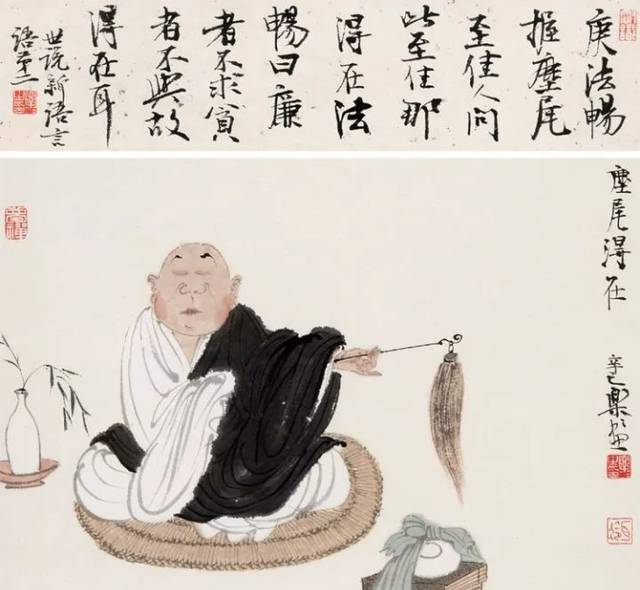 庾法暢
握麈尾
至佳人問
此至佳那
得在法
暢曰廉
者不求貪
者不與故
得在耳
世説新語言
語第二
麈尾得在
辛巳